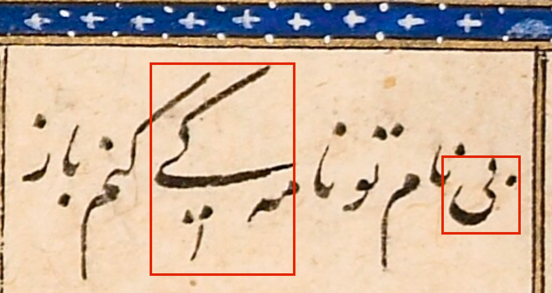 بی نام تو نامه کی کنم باز